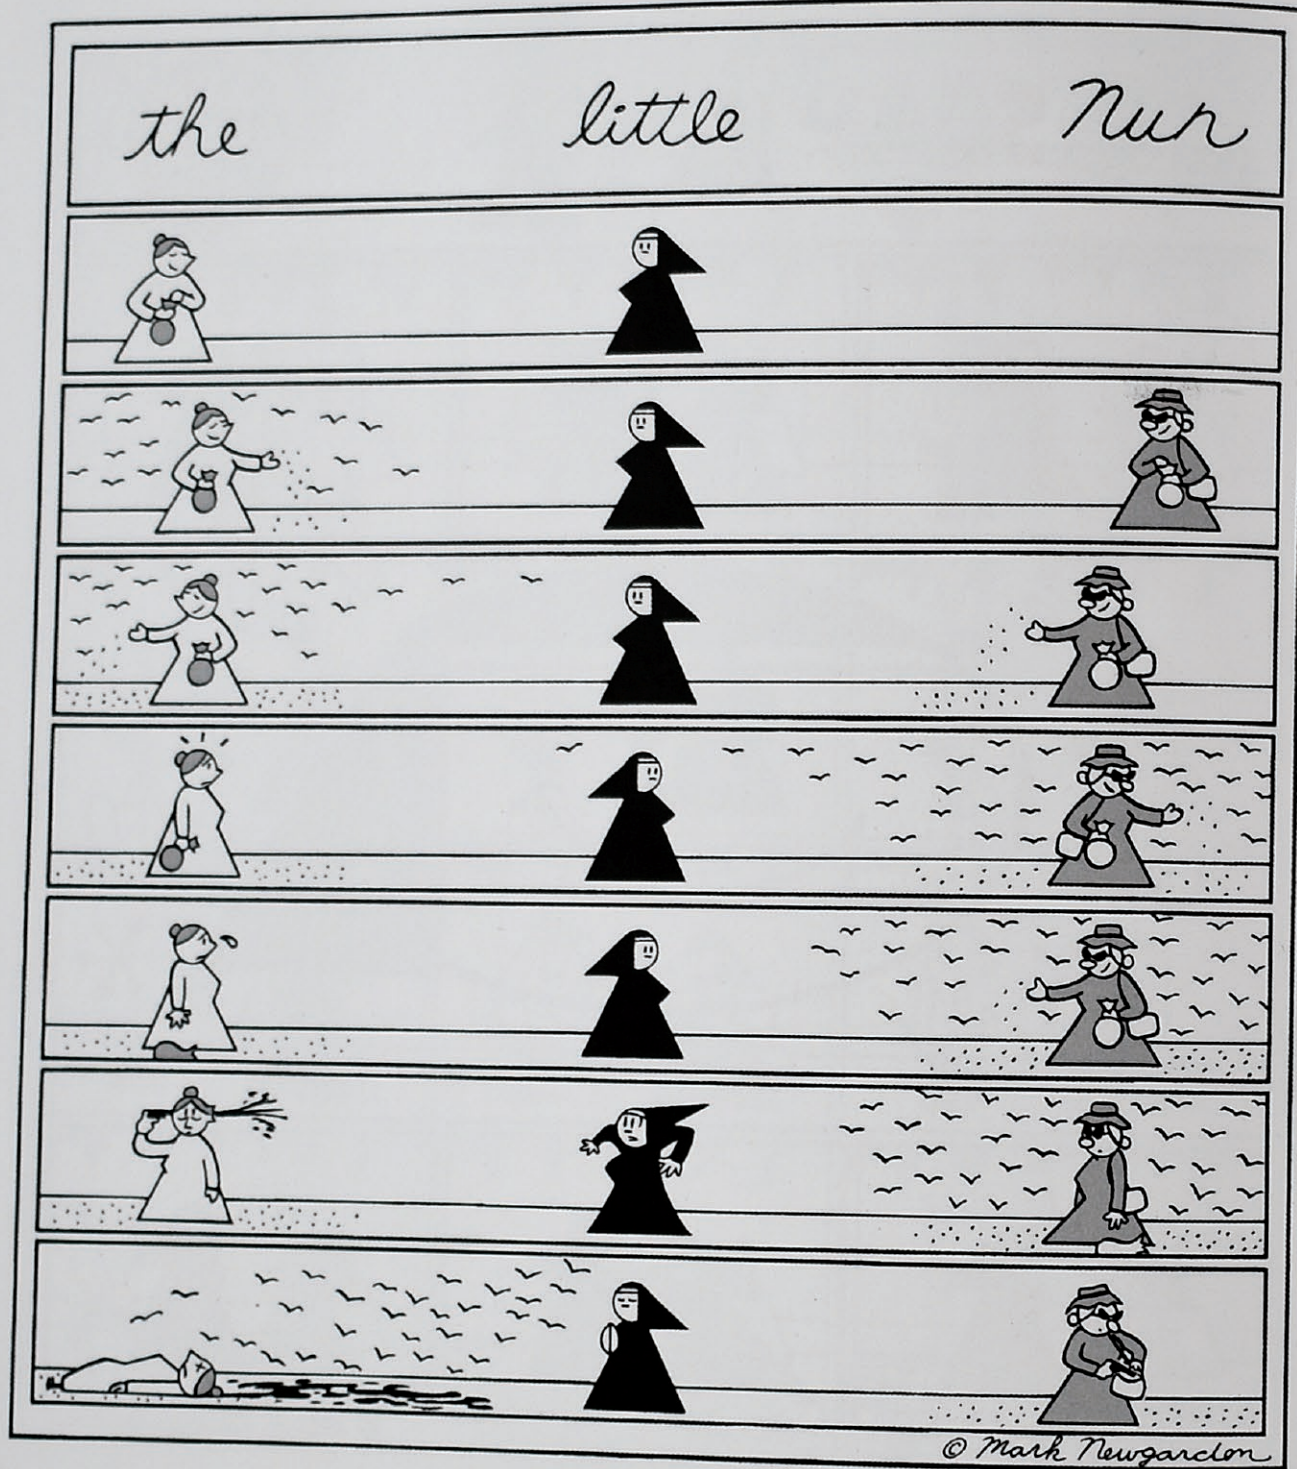 the little Nun
© Mark Newgarden